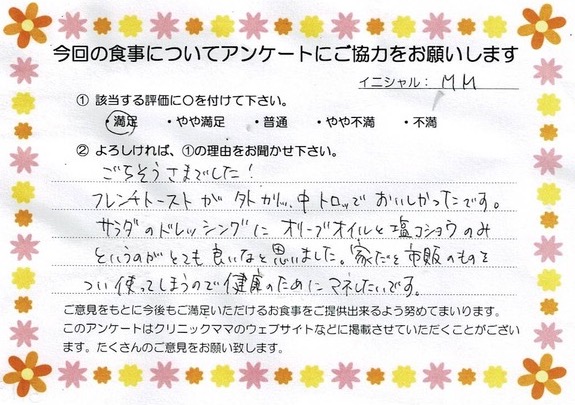 今回の食事についてアンケートにご協力をお願いします
イニシャル: MM
① 該当する評価に○を付けて下さい。
・満足 ・やや満足 ・普通 ・やや不満 ・不満
② よろしければ、①の理由をお聞かせ下さい。
ごちそうさまでした!
フレンチトーストが外カリッ、中トロッでおいしかったです。
サラダのドレッシングにオリーブオイルと塩コショウのみ
というのがとても良いなと思いました。家だと市販のものを
つい使ってしまうので健康のためにマネしたいです。
ご意見をもとに今後もご満足いただけるお食事をご提供出来るよう努めてまいります。
このアンケートはクリニックママのウェブサイトなどに掲載させていただくことがござい
ます。たくさんのご意見をお願い致します。